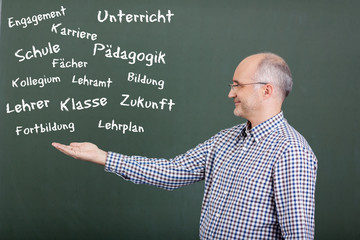 Engagement Unterricht
Karriere
Schule Pädagogik
Fächer
Kollegium Lehramt Bildung
Lehrer Klasse Zukunft
Fortbildung Lehrplan